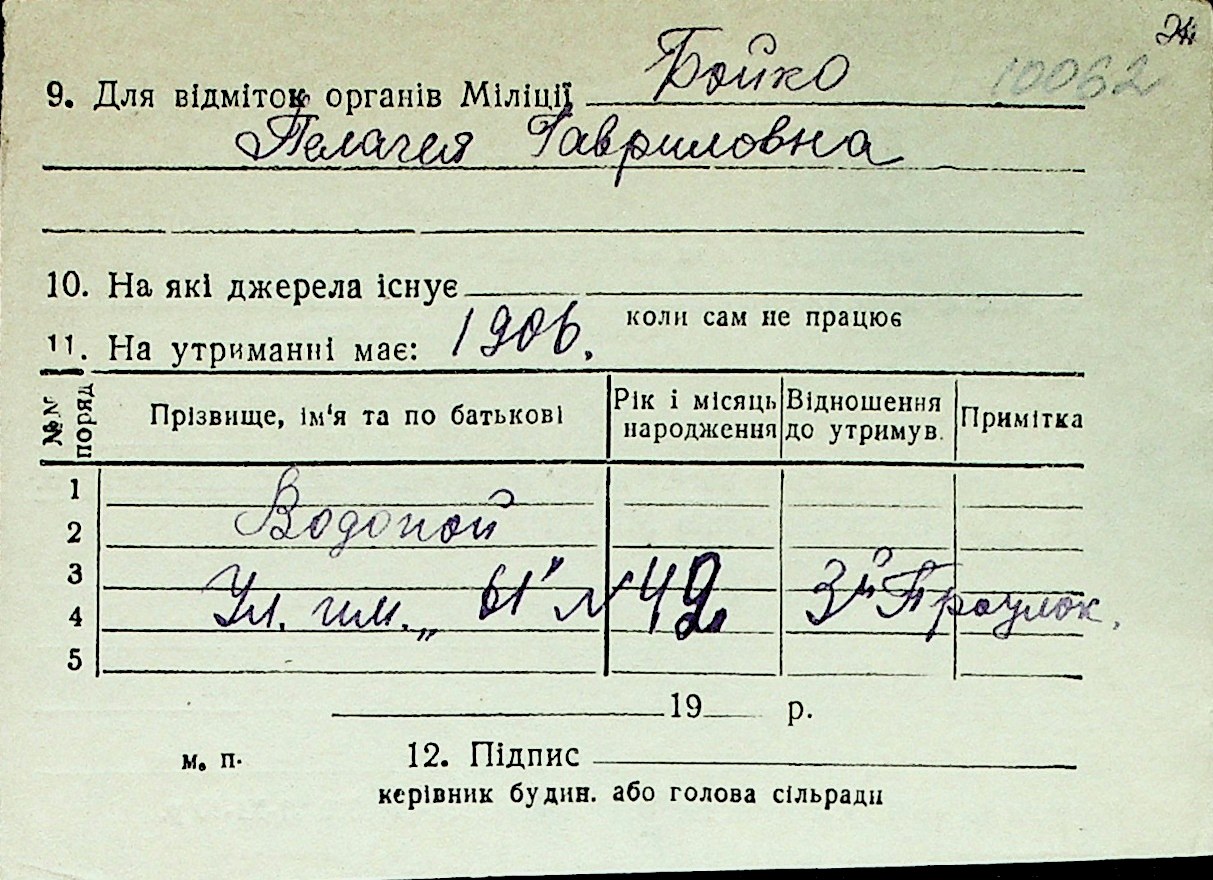 24
10062
9. Для відміток органів Міліції Бойко
Пелагея Гавриловна
10. На які джерела існує
коли сам не працює
11. На утриманні має: 1906.
№№ поряд Прізвище, ім‘я та по батькові Рік і місяць народження Відношення до утримув. Примітка
1
2 Водопой
3
4 Ул. им. „ 61" № 49 3й Проулок.
5
19 р.
м. п. 12. Підпис
керівник будин. або голова сільради